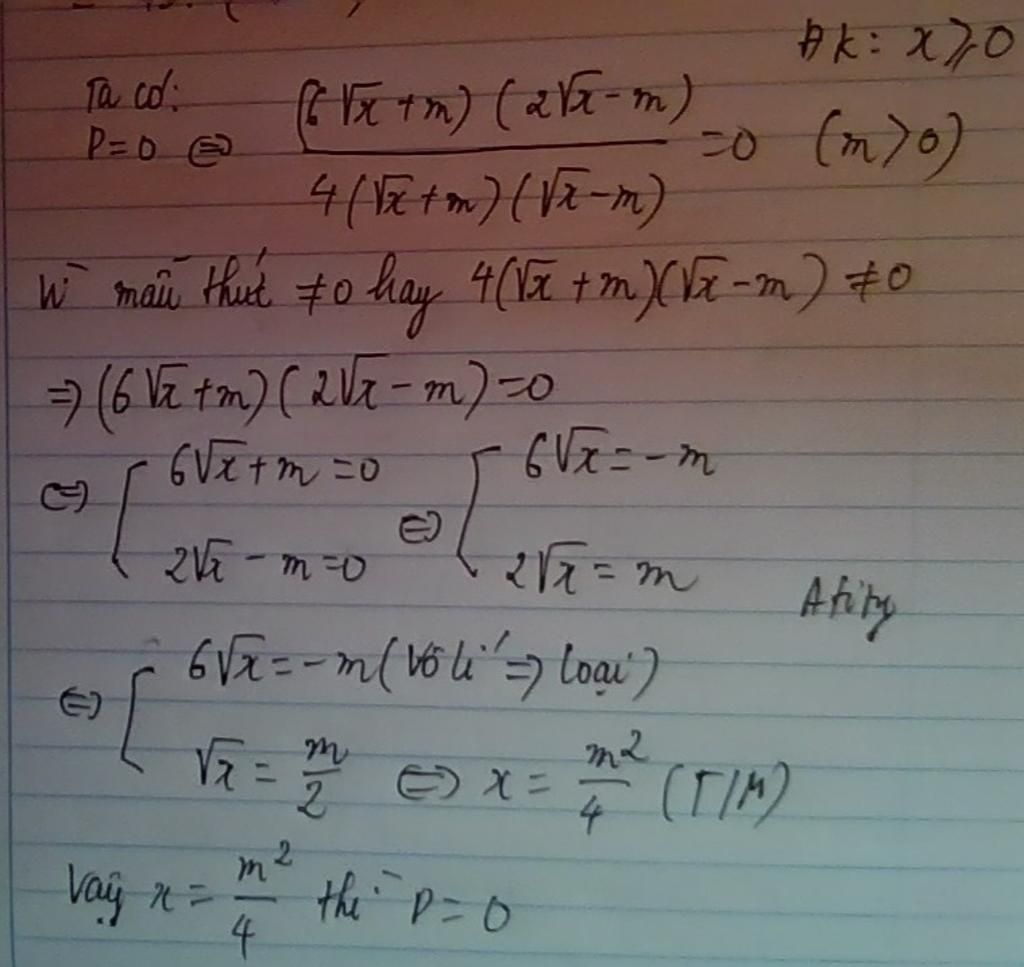 đk: x ≥ 0
Ta có:
P=0 ⇔ (6√x + m)(2√x - m) / 4(√x + m)(√x - m) = 0 (m > 0)
Vì mẫu thức ≠ 0 hay 4(√x + m)(√x - m) ≠ 0
⇒ (6√x + m)(2√x - m) = 0
⇔ [ 6√x + m = 0 ; 2√x - m = 0 ⇔ [ 6√x = -m ; 2√x = m
⇔ [ 6√x = -m (vô lí ⇒ loại)
√x = m/2 ⇔ x = m²/4 (T/M)
Vậy x = m²/4 thì P = 0